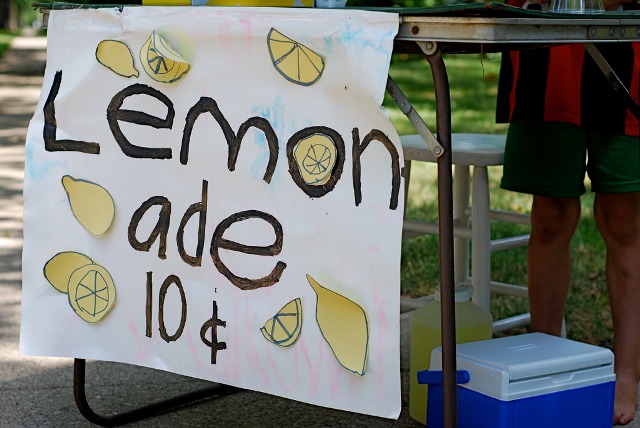 Lemon
ade
10 ¢